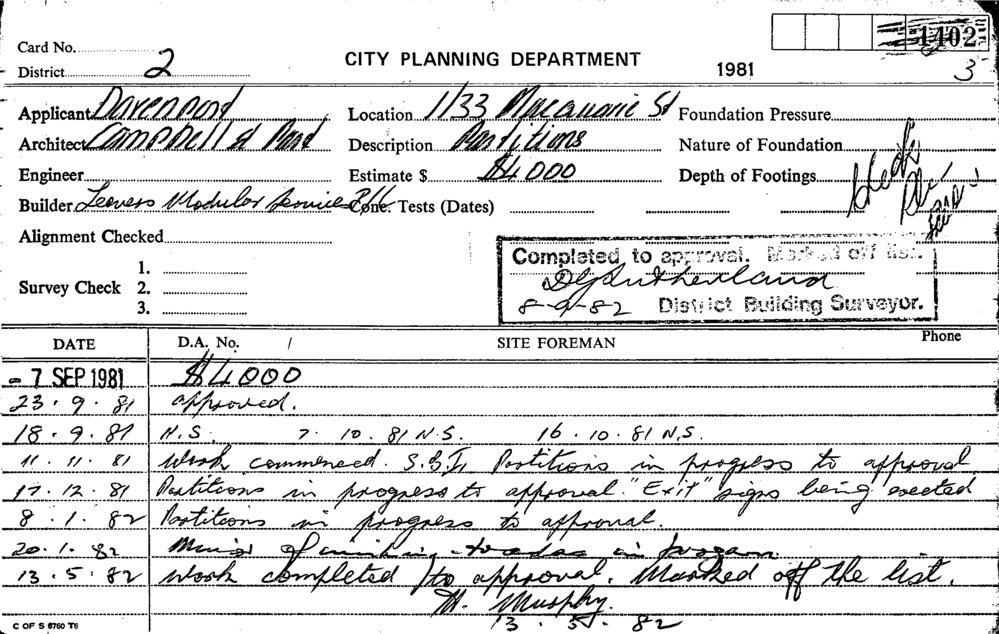 Card No.
1402
District 2 CITY PLANNING DEPARTMENT 1981 3
Applicant Davenport Location 1/33 Macquarie St Foundation Pressure
Architect Campbell & Description Partitions Nature of Foundation
Engineer Estimate $ $4000 Depth of Footings
Builder Leevers Modular Service P/L Conc. Tests (Dates)
Alignment Checked
Completed to approval. Marked off list.
1.
Survey Check 2. D G Sutherland
3. 8-9-82 District Building Surveyor.
DATE D.A. No. / SITE FOREMAN Phone
- 7 SEP 1981 $4000
23.9.81 approved.
18.9.81 N.S. 7.10.81 N.S. 16.10.81 N.S.
11.11.81 Work commenced. Partitions in progress to approval
17.12.81 Partitions in progress to approval "Exit" signs being erected
8.1.82 Partitions in progress to approval.
20.1.82 Minor finishing trades in progress
13.5.82 Work completed to approval. Marked off the list.
M. Murphy.
13.5.82
C OF S 6760 T6